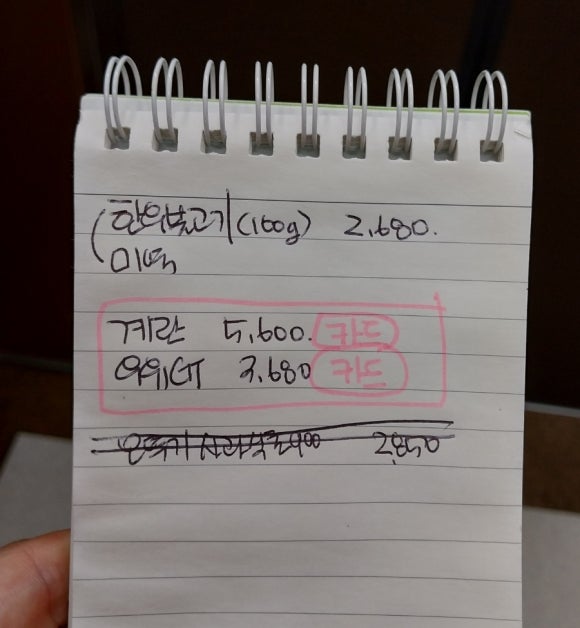 한우불고기 (160g) 2,680.
미역
계란 5,600. 카드
3,680 카드
2,850